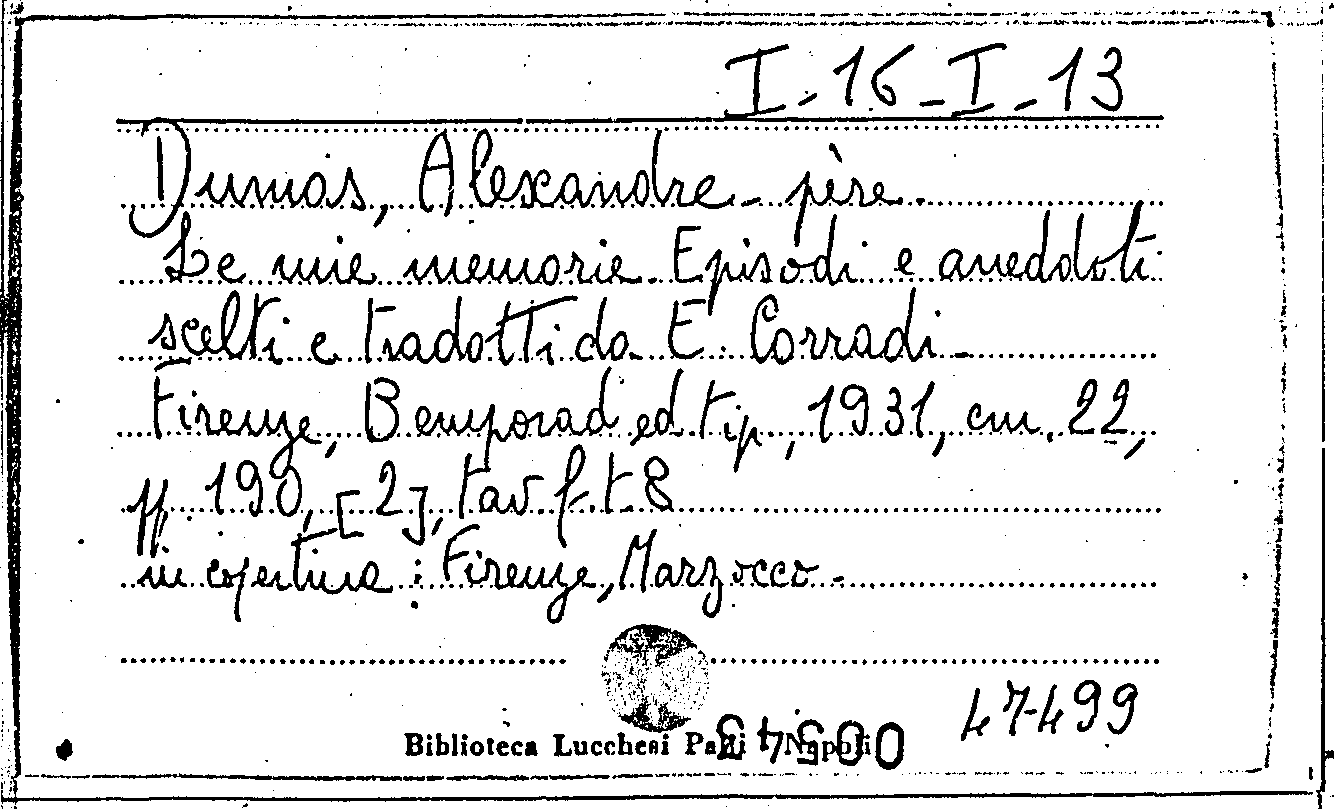 I-16-I-13
Dumas, Alexandre - père.
Le mie memorie. Episodi e aneddoti
scelti e tradotti da E. Corradi -
Firenze, Bemporad ed tip, 1931, cm. 22,
pp. 190, [2], tav f. t. 8
in copertina : Firenze, Marzocco -
47499
Biblioteca Lucchesi Palli - Napoli